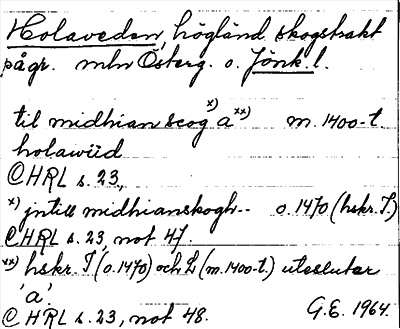 Holaveden, högländ skogstrakt
på gr. mln Österg. o. Jönk. l.
til midhian scog x) a xx) m. 1400-t.
holawiid
CHRL s. 23,
x) jntill midhianskogh-- o. 1470 (hskr. I.)
CHRL s. 23, not 47.
xx) hskr. I (o. 1470) och L (m. 1400-t.) utesluter
'a'.
CHRL s. 23, not 48. G.E. 1964.